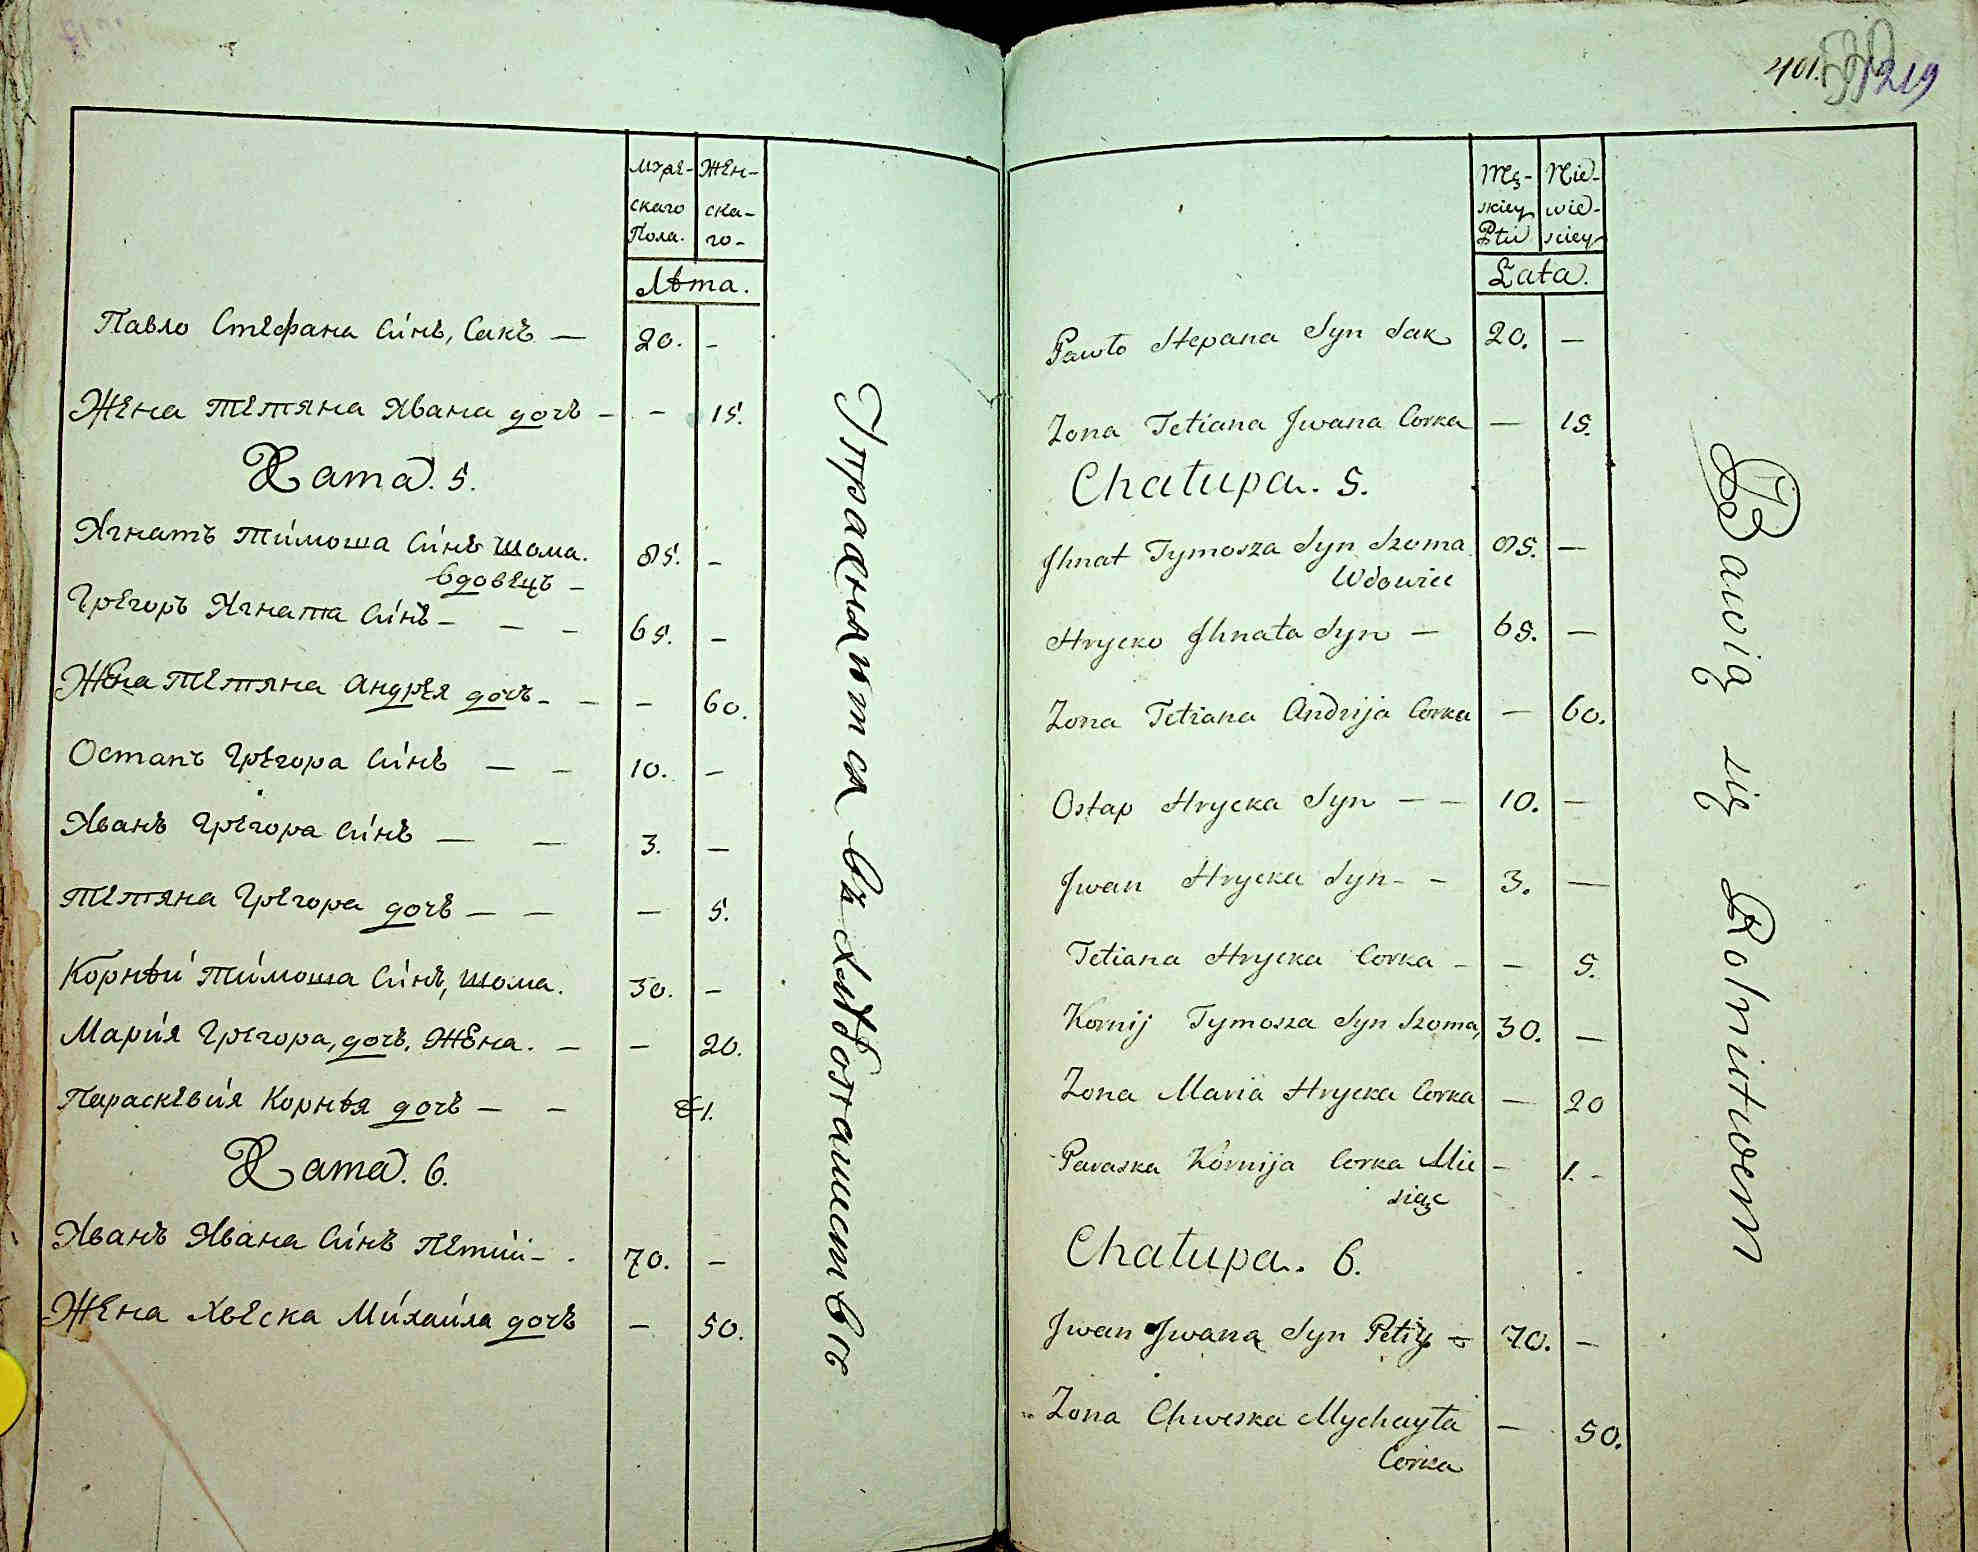 Муже- Жен-
скаго ска-
Пола. го-
Лѣта.
Павло Стефана Сынъ, Сакъ — 20. –
Жена Тетяна Ивана дочь – – 15.
Хата. 5.
Игнатъ Тимоша Сынъ Шома. 85. –
вдовецъ –
Грегоръ Игната Сынъ – – – 65. –
Жена Тетяна Андрея дочь – – – 60.
Остапъ Грегора Сынъ — – 10. –
Иванъ Грегора Сынъ — — 3. –
Тетяна Грегора дочь – — — 5.
Корнѣй Тимоша Сынъ, Шома. 30. –
Мария Грегора, дочь, Жена. – – 20.
Параскевия Корнѣя дочь – – 1.
Хата. 6.
Иванъ Ивана Сынъ Петий – . 70. –
Жена Хвеска Михаила дочь – 50.
Упрадняются въ хлѣбопашествѣ
401. 219
Męs- Nie-
skiey wie-
Płci sciey
Lata.
Pawło Stepana Syn Sak 20. —
Zona Tetiana Jwana Corka — 15.
Chałupa. 5.
Jhnat Tymosza Syn Szoma 85. —
Wdowiec
Hrycko Jhnata Syn — 65. —
Zona Tetiana Andrija Corka — 60.
Ostap Hrycka Syn — – 10. –
Jwan Hrycka Syn – – 3. —
Tetiana Hrycka Corka – – 5.
Kornij Tymosza Syn Szoma, 30. —
Zona Maria Hrycka Corka — 20
Paraska Kornija Corka Mie – 1. –
siąc
Chałupa. 6.
Jwan Jwana Syn Petiy – 70. –
Zona Chweska Mychayła — 50.
Corka
Bawią się Rolnictwem